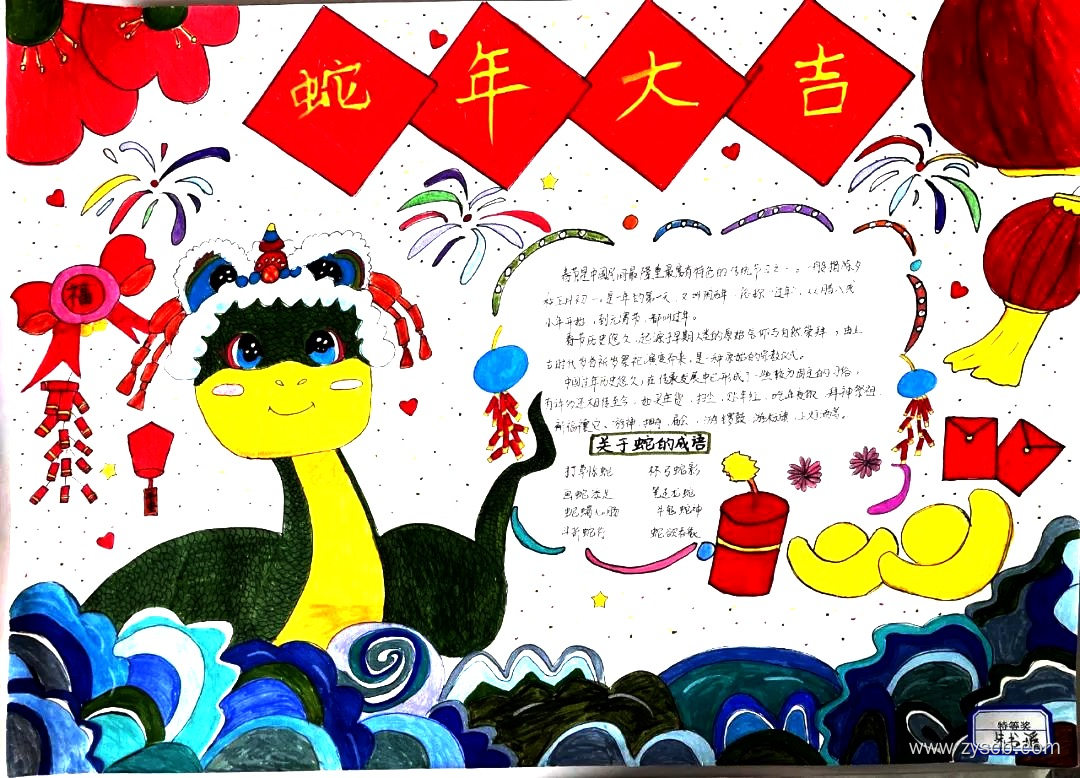 蛇年大吉
福
春节是中国民间最隆重最富有特色的传统节日之一。一般指除夕
和正月初一。是一年的第一天,又叫阴历年,俗称“过年”,从腊八或
小年开始,到元宵节,都叫过年。
春节历史悠久,起源于早期人类的原始信仰与自然崇拜,由上
古时代岁首祈岁祭祀演变而来,是一种原始的宗教仪式。
中国过年历史悠久,在传承发展中已形成了一些较为固定的习俗,
有许多还相传至今,如买年货、扫尘、贴年红、吃年夜饭、拜神祭祖、
游神、庙会、游锣鼓
关于蛇的成语
打草惊蛇 杯弓蛇影
画蛇添足 笔走龙蛇
蛇蝎心肠 牛鬼蛇神
斗折蛇行 蛇欲吞象
特等奖
www.zyscb.com